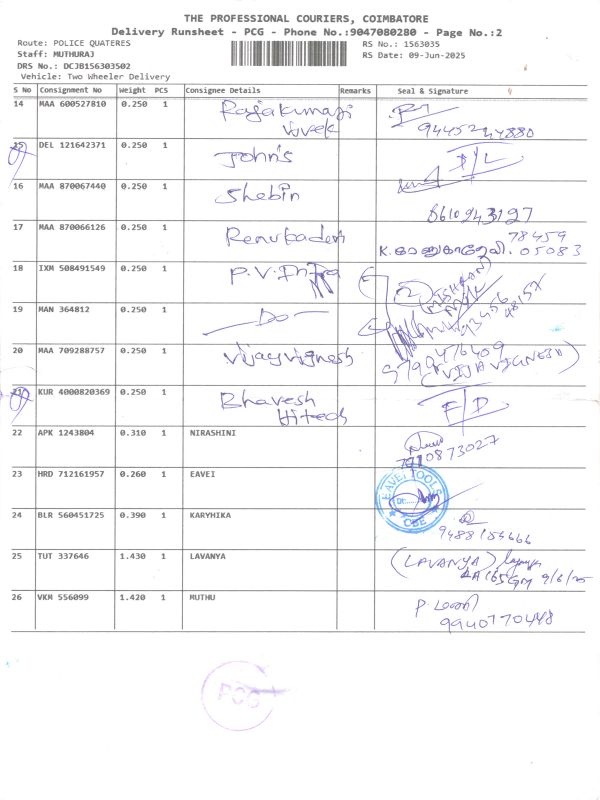 THE PROFESSIONAL COURIERS, COIMBATORE
Delivery Runsheet - PCG - Phone No.:9047080280 - Page No.:2
Route: POLICE QUATERES RS No.: 1563035
Staff: MUTHURAJ RS Date: 09-Jun-2025
DRS No.: DCJB156303502
Vehicle: Two Wheeler Delivery
S No Consignment No Weight PCS Consignee Details Remarks Seal & Signature
14 MAA 600527810 0.250 1 Rajakumari
Vivek 9445244880
15 DEL 121642371 0.250 1 John's D/L
16 MAA 870067440 0.250 1 Shebin
8610943127
17 MAA 870066126 0.250 1 Renukadevi 78459
05083
18 IXM 508491549 0.250 1 P.V.
19 MAN 364812 0.250 1 -Do-
20 MAA 709288757 0.250 1 Vijayvignesh
(VIJAVIGNESH)
21 KUR 4000820369 0.250 1 Bhavesh
Hitech F/D
22 APK 1243804 0.310 1 NIRASHINI
23 HRD 712161957 0.260 1 EAVEI EAVEI TOOLS
CBE
24 BLR 560451725 0.390 1 KARYHIKA
25 TUT 337646 1.430 1 LAVANYA (LAVANYA)
9/6/25
26 VKM 556099 1.420 1 MUTHU
9940770448
PCG